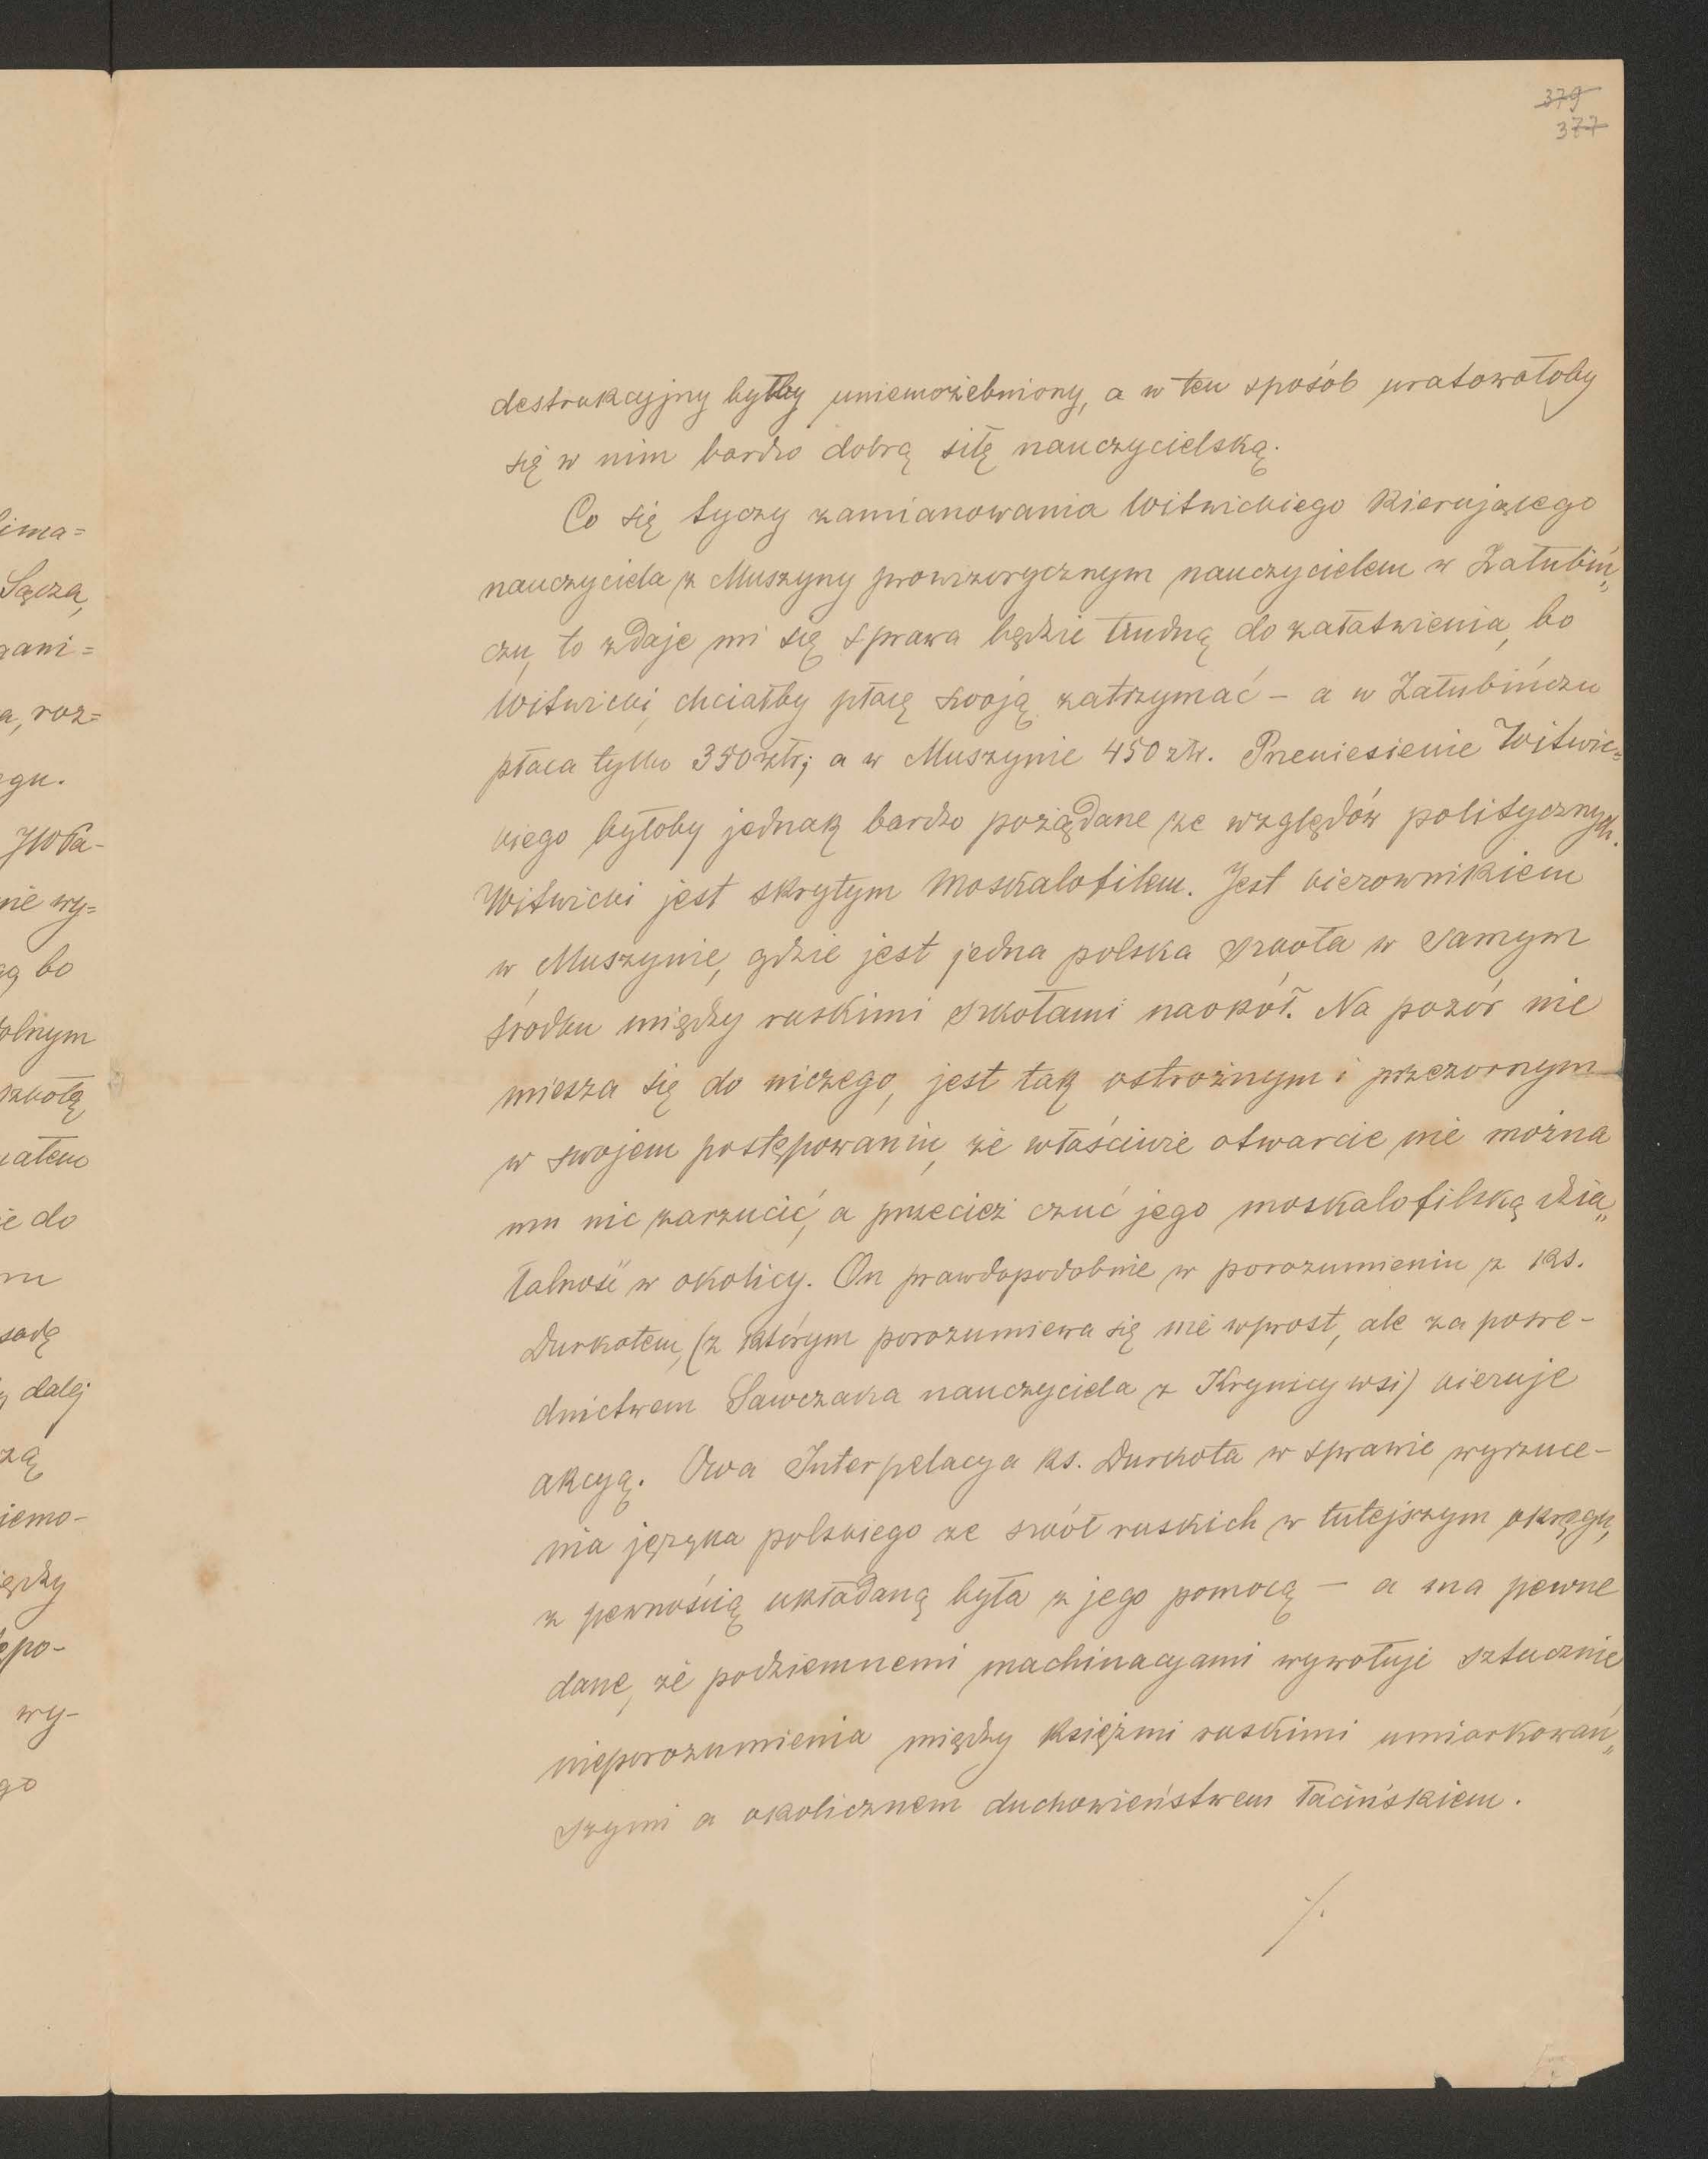 379
377
destrukcyjny byłby uniemożebniony, a w ten sposób uratowałoby
się w nim bardzo dobrą siłę nauczycielską.
Co się tyczy zamianowania Witwickiego kierującego
nauczyciela z Muszyny prowizorycznym nauczycielem w Załubiń„
czu, to zdaje mi się sprawa będzie trudną do załatwienia, bo
Witwicki, chciałby płacę swoją zatrzymać – a w Załubińczu
płaca tylko 350 złr; a w Muszynie 450 złr. Przeniesienie Witwic=
kiego byłoby jednak bardzo pożądane ze względów politycznych.
Witwicki jest skrytym Moskalofilem. Jest kierownikiem
w Muszynie, gdzie jest jedna polska szkoła w samym
środku między ruskimi szkołami naokół. Na pozór nie
miesza się do niczego, jest tak ostrożnym i przezornym
w swojem postępowaniu, że właściwie otwarcie nie można
mu nic zarzucić, a przecież czuć jego moskalofilską dzia„
łalność w okolicy. On prawdopodobnie w porozumieniu z ks.
Durkotem, (z którym porozumiewa się nie wprost, ale za pośre-
dnictwem Sawczaka nauczyciela z Krynicy wsi) kieruje
akcyą. Owa Interpelacya ks. Durkota w sprawie wyrzuce-
nia języka polskiego ze szkół ruskich w tutejszym okręgu,
z pewnością układaną była z jego pomocą – a ma pewne
dane, że podziemnemi machinacyami wywołuje sztucznie
nieporozumienia między księżmi ruskimi umiarkowań„
szymi a okolicznem duchowieństwem łacińskiem.
./.
ima=
Sącza,
zani=
a, roz=
egu.
nie wy=
ą bo
olnym
szkołą,
atem
ie do
m
sadę
dalej
zą
iemo-
iędzy
epo-
wy-
go